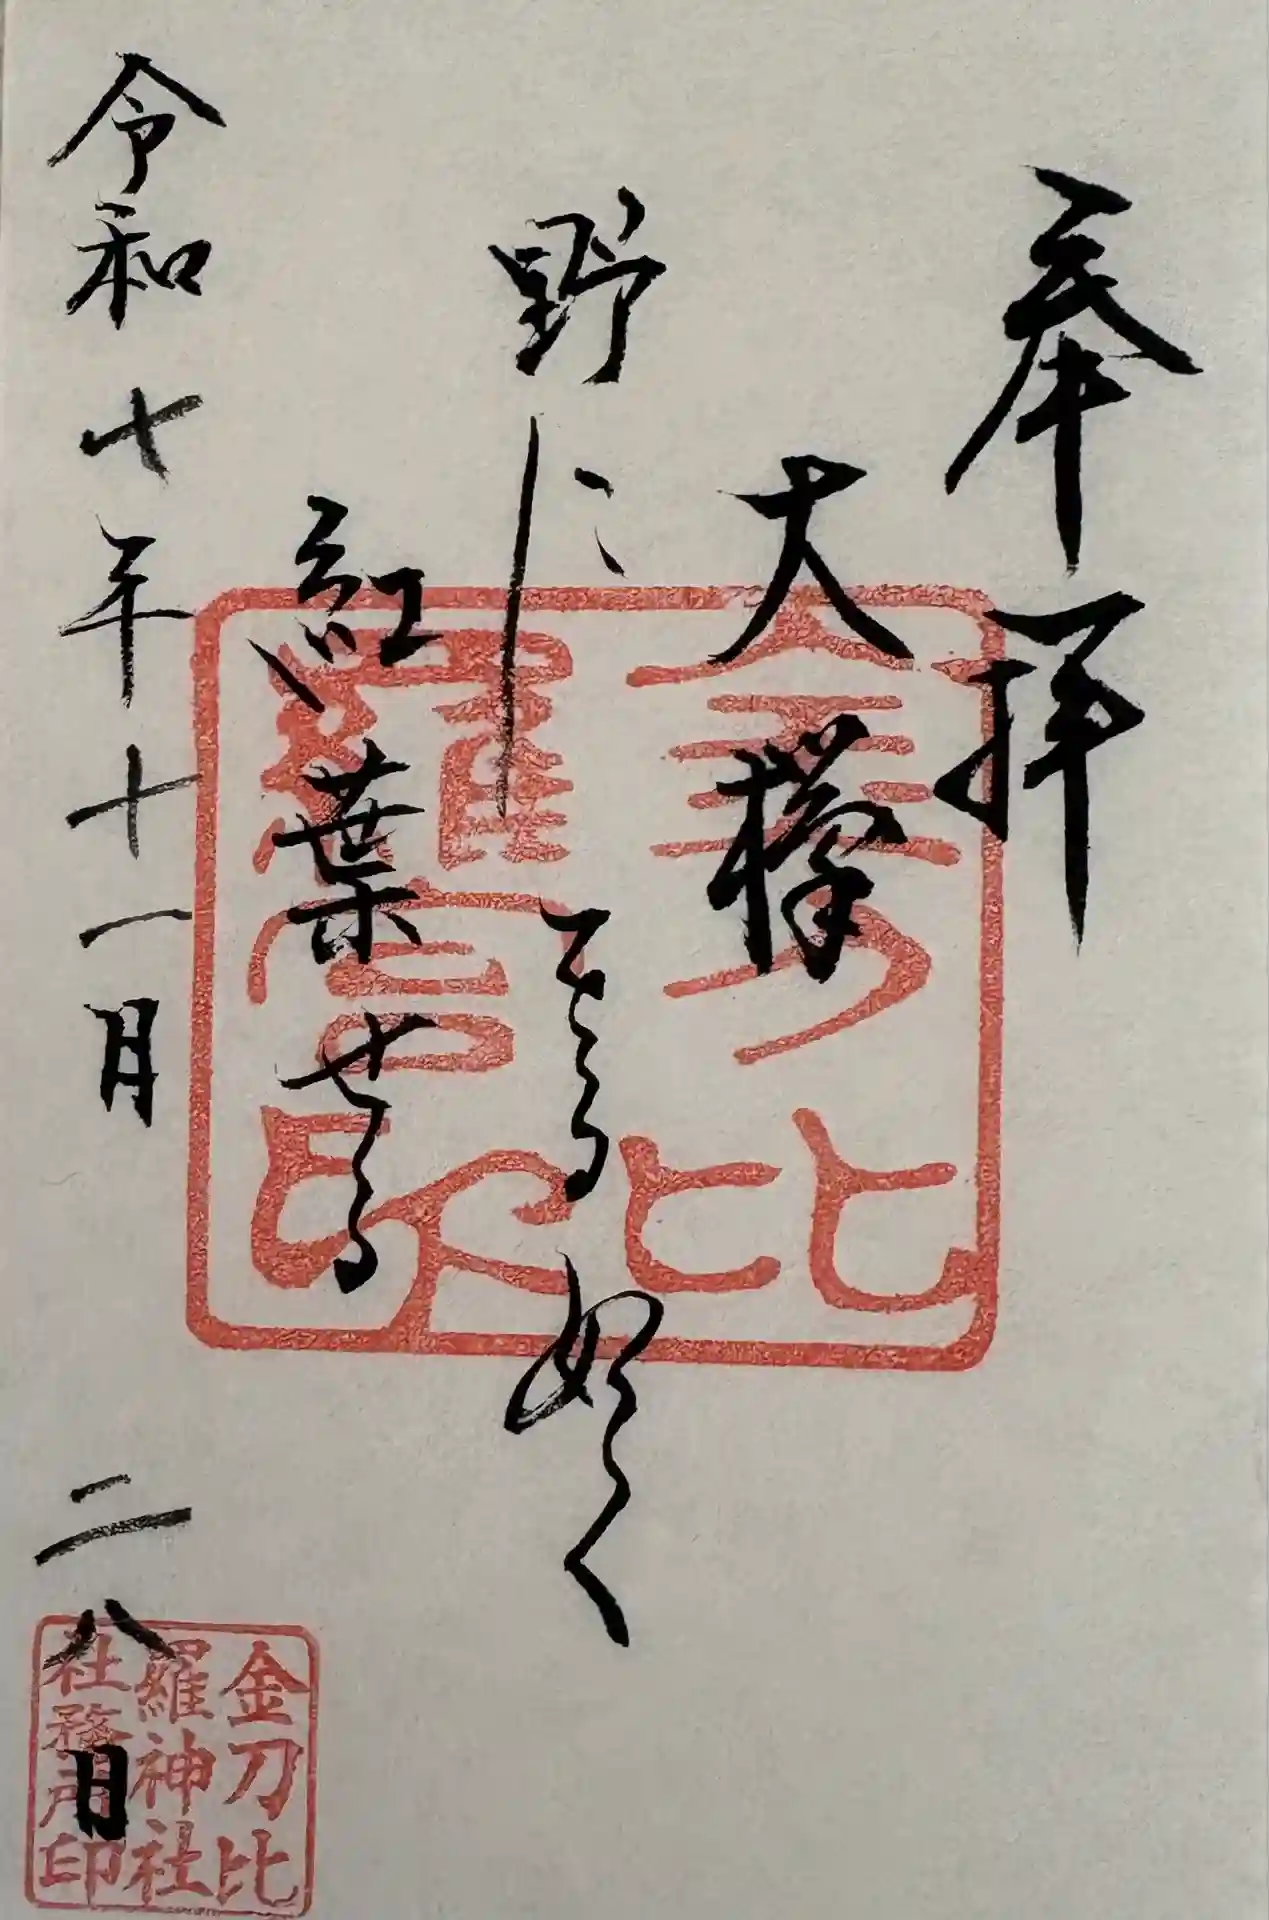 奉拝
大欅
野にる如く
紅葉せる
令和七年十一月二八日
金刀比
羅宮印
金刀比
羅神社
社務所印